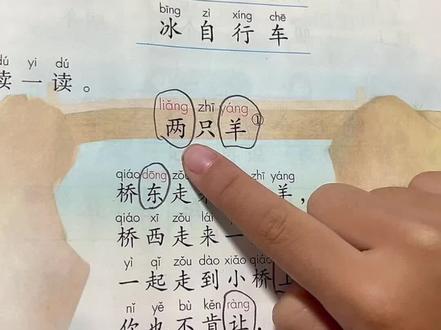 bīng zì xíng chē
冰自行车
yì dú
读一读。
liǎng zhī yáng
两只羊①
qiáo dōng zǒu zhī yáng
桥东走 羊，
qiáo xī zǒu lái
桥西走来一
yì qǐ zǒu dào xiǎo qiáo
一起走到小桥上
nǐ yě bù kěn ràng
你也不肯让，